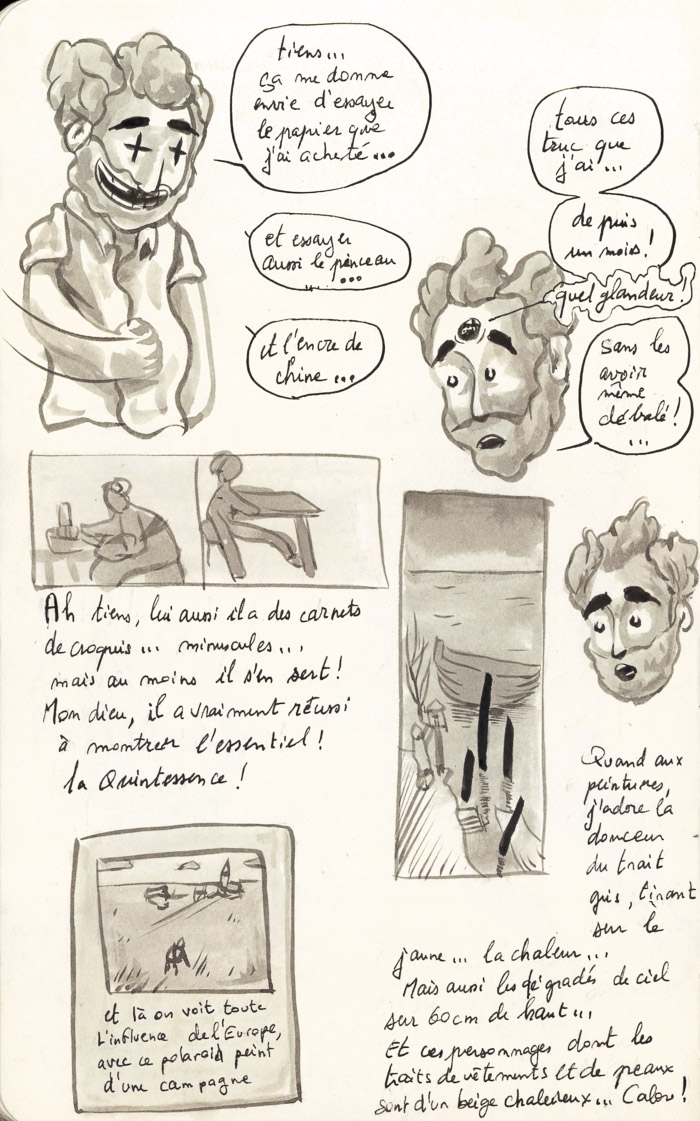 tiens...
ça me donne
envie d'essayer
le papier que
j'ai acheté...
et essayer
aussi le pinceau
...
et l'encre de
chine...
tous ces
truc que
j'ai...
depuis
un mois!
quel glandeur!
Sans les
avoir
même
débalé!
...
Ah tiens, lui aussi il a des carnets
de croquis... minuscules...
mais au moins il s'en sert!
Mon dieu, il a vraiment réussi
à montrer l'essentiel!
la Quintessence!
et là on voit toute
l'influence de l'Europe,
avec ce polaroid peint
d'une campagne
Quand aux
peintures,
j'adore la
douceur
du trait
gris, tirant
sur le
jaune... la chaleur...
Mais aussi les dégradés de ciel
sur 60cm de haut...
Et ces personnages dont les
traits de vêtements et de peaux
sont d'un beige chaleureux... Calou!